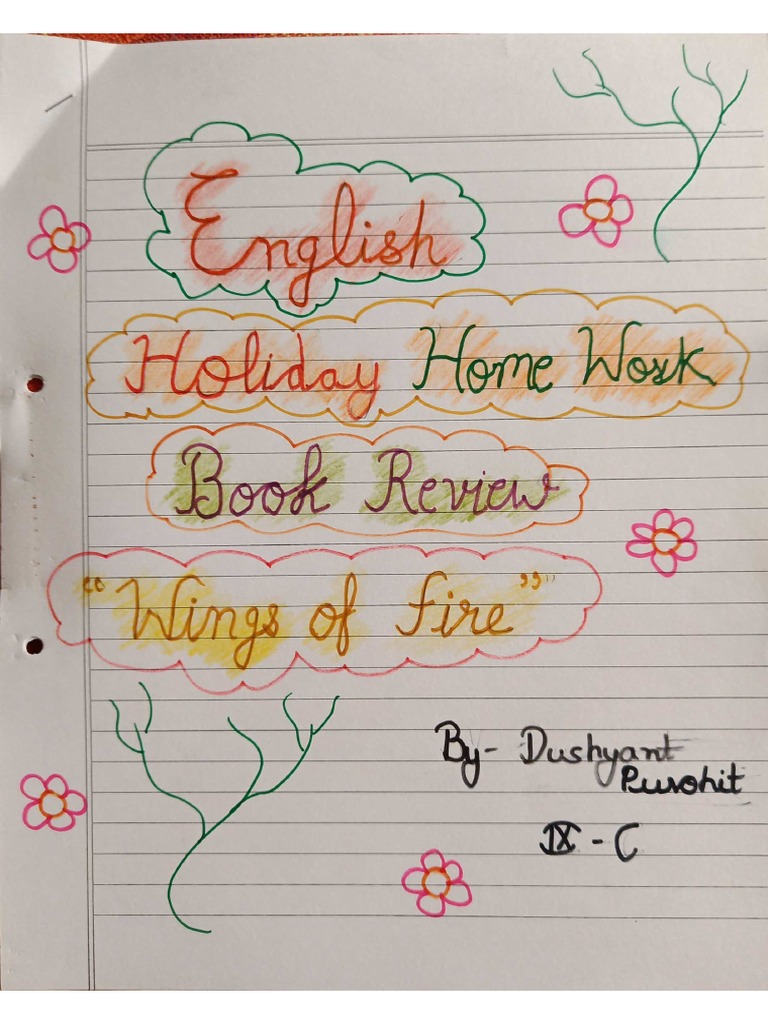 English
Holiday Home Work
Book Review
"Wings of fire"
By- Dushyant
Purohit
IX - C